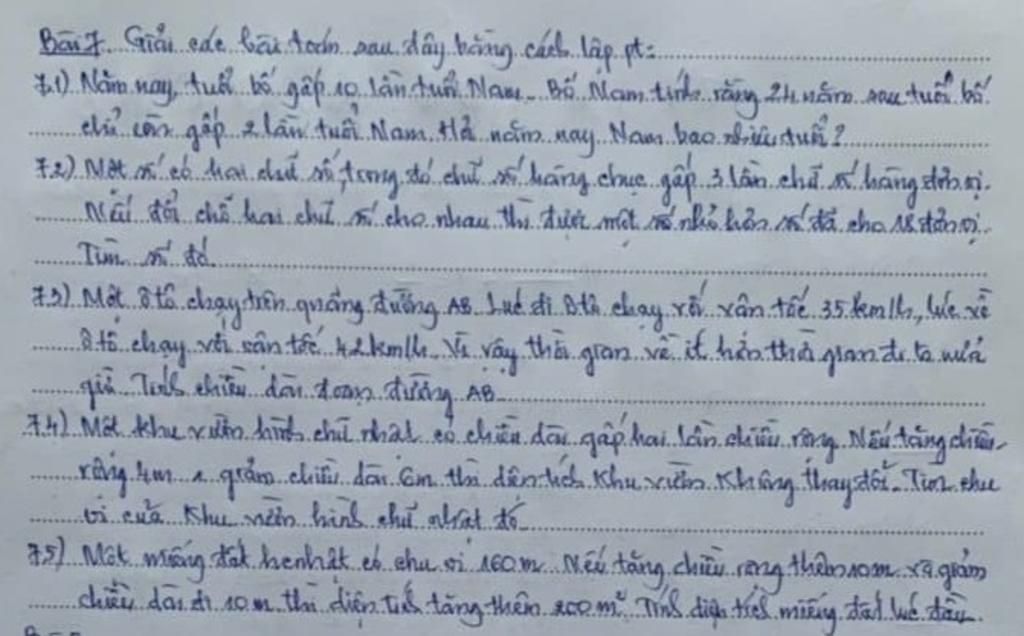 Bài 7. Giải các bài toán sau đây bằng cách lập pt:
7.1) Năm nay, tuổi bố gấp 10 lần tuổi Nam. Bố Nam tính rằng 24 năm sau tuổi bố
chỉ còn gấp 2 lần tuổi Nam. Hỏi năm nay Nam bao nhiêu tuổi?
7.2) Một số có hai chữ số, trong đó chữ số hàng chục gấp 3 lần chữ số hàng đơn vị.
Nếu đổi chỗ hai chữ số cho nhau thì được một số nhỏ hơn số đã cho 18 đơn vị.
Tìm số đó.
7.3) Một ôtô chạy trên quãng đường AB. Lúc đi ôtô chạy với vận tốc 35km/h, lúc về
ôtô chạy với vận tốc 42km/h. Vì vậy thời gian về ít hơn thời gian đi là nửa
giờ. Tính chiều dài đoạn đường AB.
7.4) Một khu vườn hình chữ nhật có chiều dài gấp hai lần chiều rộng. Nếu tăng chiều
rộng 4m giảm chiều dài 6m thì diện tích khu vườn không thay đổi. Tìm chu
vi của khu vườn hình chữ nhật đó.
7.5) Một miếng đất hcnhật có chu vi 160m. Nếu tăng chiều rộng thêm 10m và giảm
chiều dài đi 10m thì diện tích tăng thêm 200m². Tính diện tích miếng đất lúc đầu.